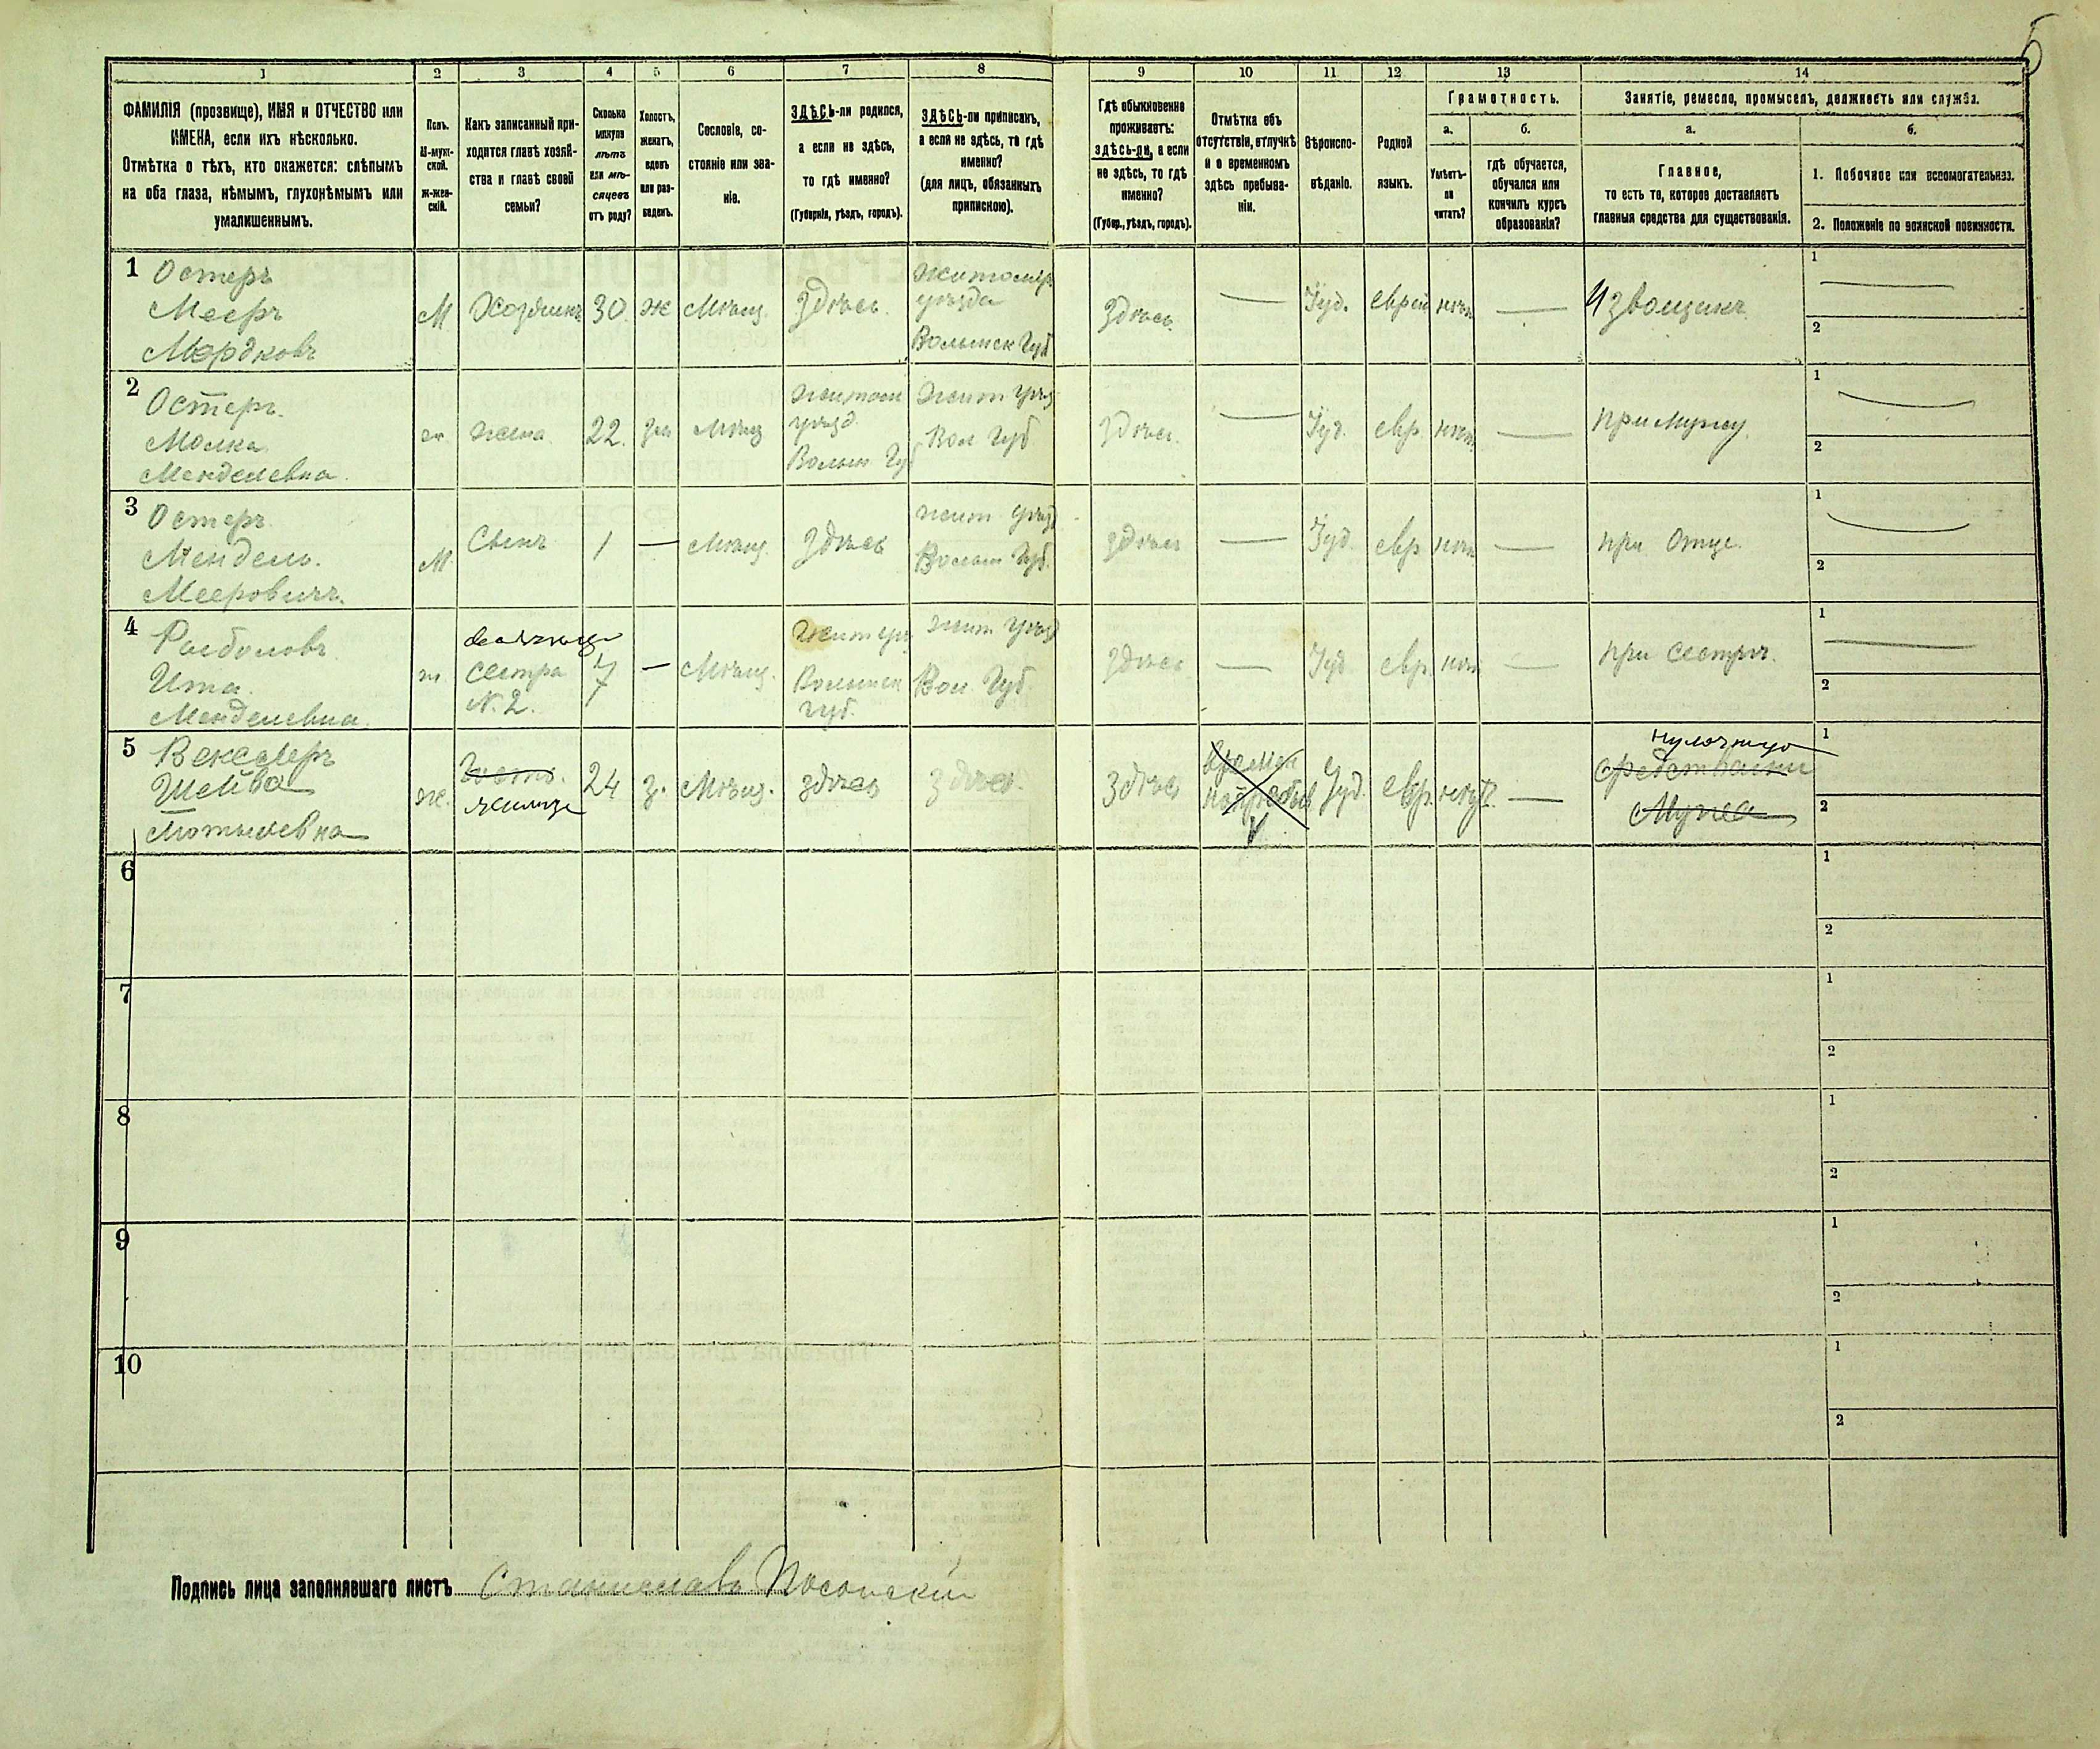 5
1 2 3 4 5 6 7 8 9 10 11 12 13 14
ФАМИЛІЯ (прозвище), ИМЯ и ОТЧЕСТВО или
ИМЕНА, если ихъ нѣсколько.
Отмѣтка о тѣхъ, кто окажется: слѣпымъ
на оба глаза, нѣмымъ, глухонѣмымъ или
умалишеннымъ.
Полъ.
М-муж-
ской.
Ж-жен-
скій.
Какъ записанный при-
ходится главѣ хозяй-
ства и главѣ своей
семьи?
Сколько
минуло
лѣтъ
или мѣ-
сяцевъ
отъ роду?
Холостъ,
женатъ,
вдовъ
или раз-
веденъ.
Сословіе, со-
стояніе или зва-
ніе.
ЗДѢСЬ-ли родился,
а если не здѣсь,
то гдѣ именно?
(Губернія, уѣздъ, городъ).
ЗДѢСЬ-ли приписанъ,
а если не здѣсь, то гдѣ
именно?
(для лицъ, обязанныхъ
припискою).
Гдѣ обыкновенно
проживаетъ:
здѣсь-ли, а если
не здѣсь, то гдѣ
именно?
(Губер., уѣздъ, городъ).
Отмѣтка объ
отсутствіи, отлучкѣ
и о временномъ
здѣсь пребыва-
ніи.
Вѣроиспо-
вѣданіе.
Родной
языкъ.
Грамотность.
а.
Умѣетъ-
ли
читать?
б.
гдѣ обучается,
обучался или
кончилъ курсъ
образованія?
Занятіе, ремесло, промыселъ, должность или служба.
а.
Главное,
то есть то, которое доставляетъ
главныя средства для существованія.
б.
1. Побочное или вспомогательное.
2. Положеніе по воинской повинности.
1
Остеръ
Мееръ
Мордковъ
М
Хозяинъ
30
ж
Мѣщ.
здѣсь.
Житомір.
уѣзда
Волынск Губ
здѣсь
—
Іуд.
еврей
нѣтъ
—
Извощикъ
1
2
2
Остеръ.
Малка
Менделевна.
ж.
жена
22.
зм
Мѣщ
Житом
уѣзд.
Волын Губ
Жит Уѣз
Вол Губ
здѣсь.
—
Іуд.
евр.
нѣтъ
—
при мужу
1
2
3
Остеръ
Мендель.
Мееровичъ.
М
Сынъ
1
—
Мѣщ.
здѣсь
жит Уѣзд
Волын Губ.
здѣсь
—
Іуд.
евр
нѣтъ
—
при Отце.
1
2
4
Ита.
Менделевна.
ж.
сестра
N. 2.
7
—
Мѣщ.
Жит уѣз
Волынск
губ.
жит Уѣзд
Вол. Губ.
здѣсь
—
Іуд.
евр.
нѣтъ
—
при сестрѣ.
1
2
5
Векслеръ
Шейва
Мотылевна
ж.
Гость.
жилица
24
з.
Мѣщ.
здѣсь
здѣсь.
Здѣсь
Времен
Іуд.
евр.
нѣтъ
—
средствами
Мужа
1
2
6
1
2
7
1
2
8
1
2
9
1
2
10
1
2
Подпись лица заполнявшаго листъ Станиславъ